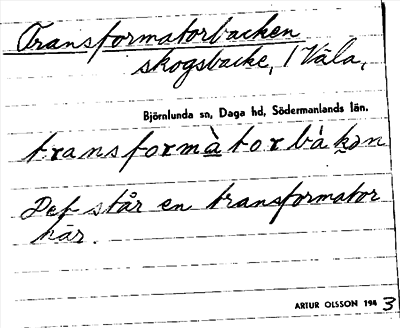 Transformatorbacken
skogsbacke, / Väla,
Björnlunda sn, Daga hd, Södermanlands län.
transformàtorbàkən
Det står en transformator
här.
ARTUR OLSSON 1943